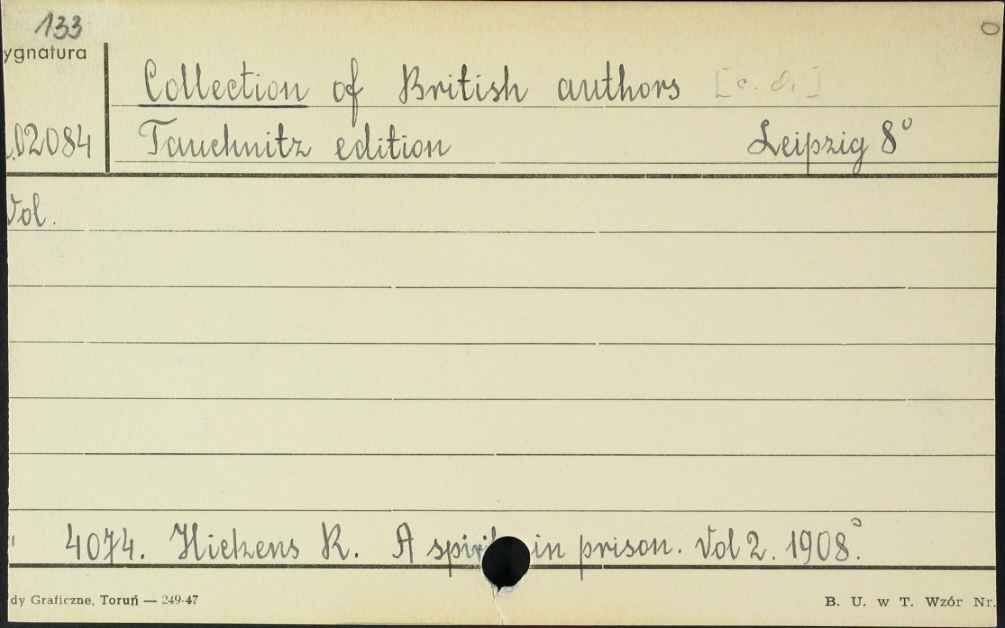 133
ygnatura
Collection of British authors [c.d.]
02084 Tauchnitz edition Leipzig 8°
Vol.
" 4074. Hichens R. A spirit in prison. Vol 2. 1908.
dy Graficzne, Toruń — 249-47 B. U. w T. Wzór Nr.